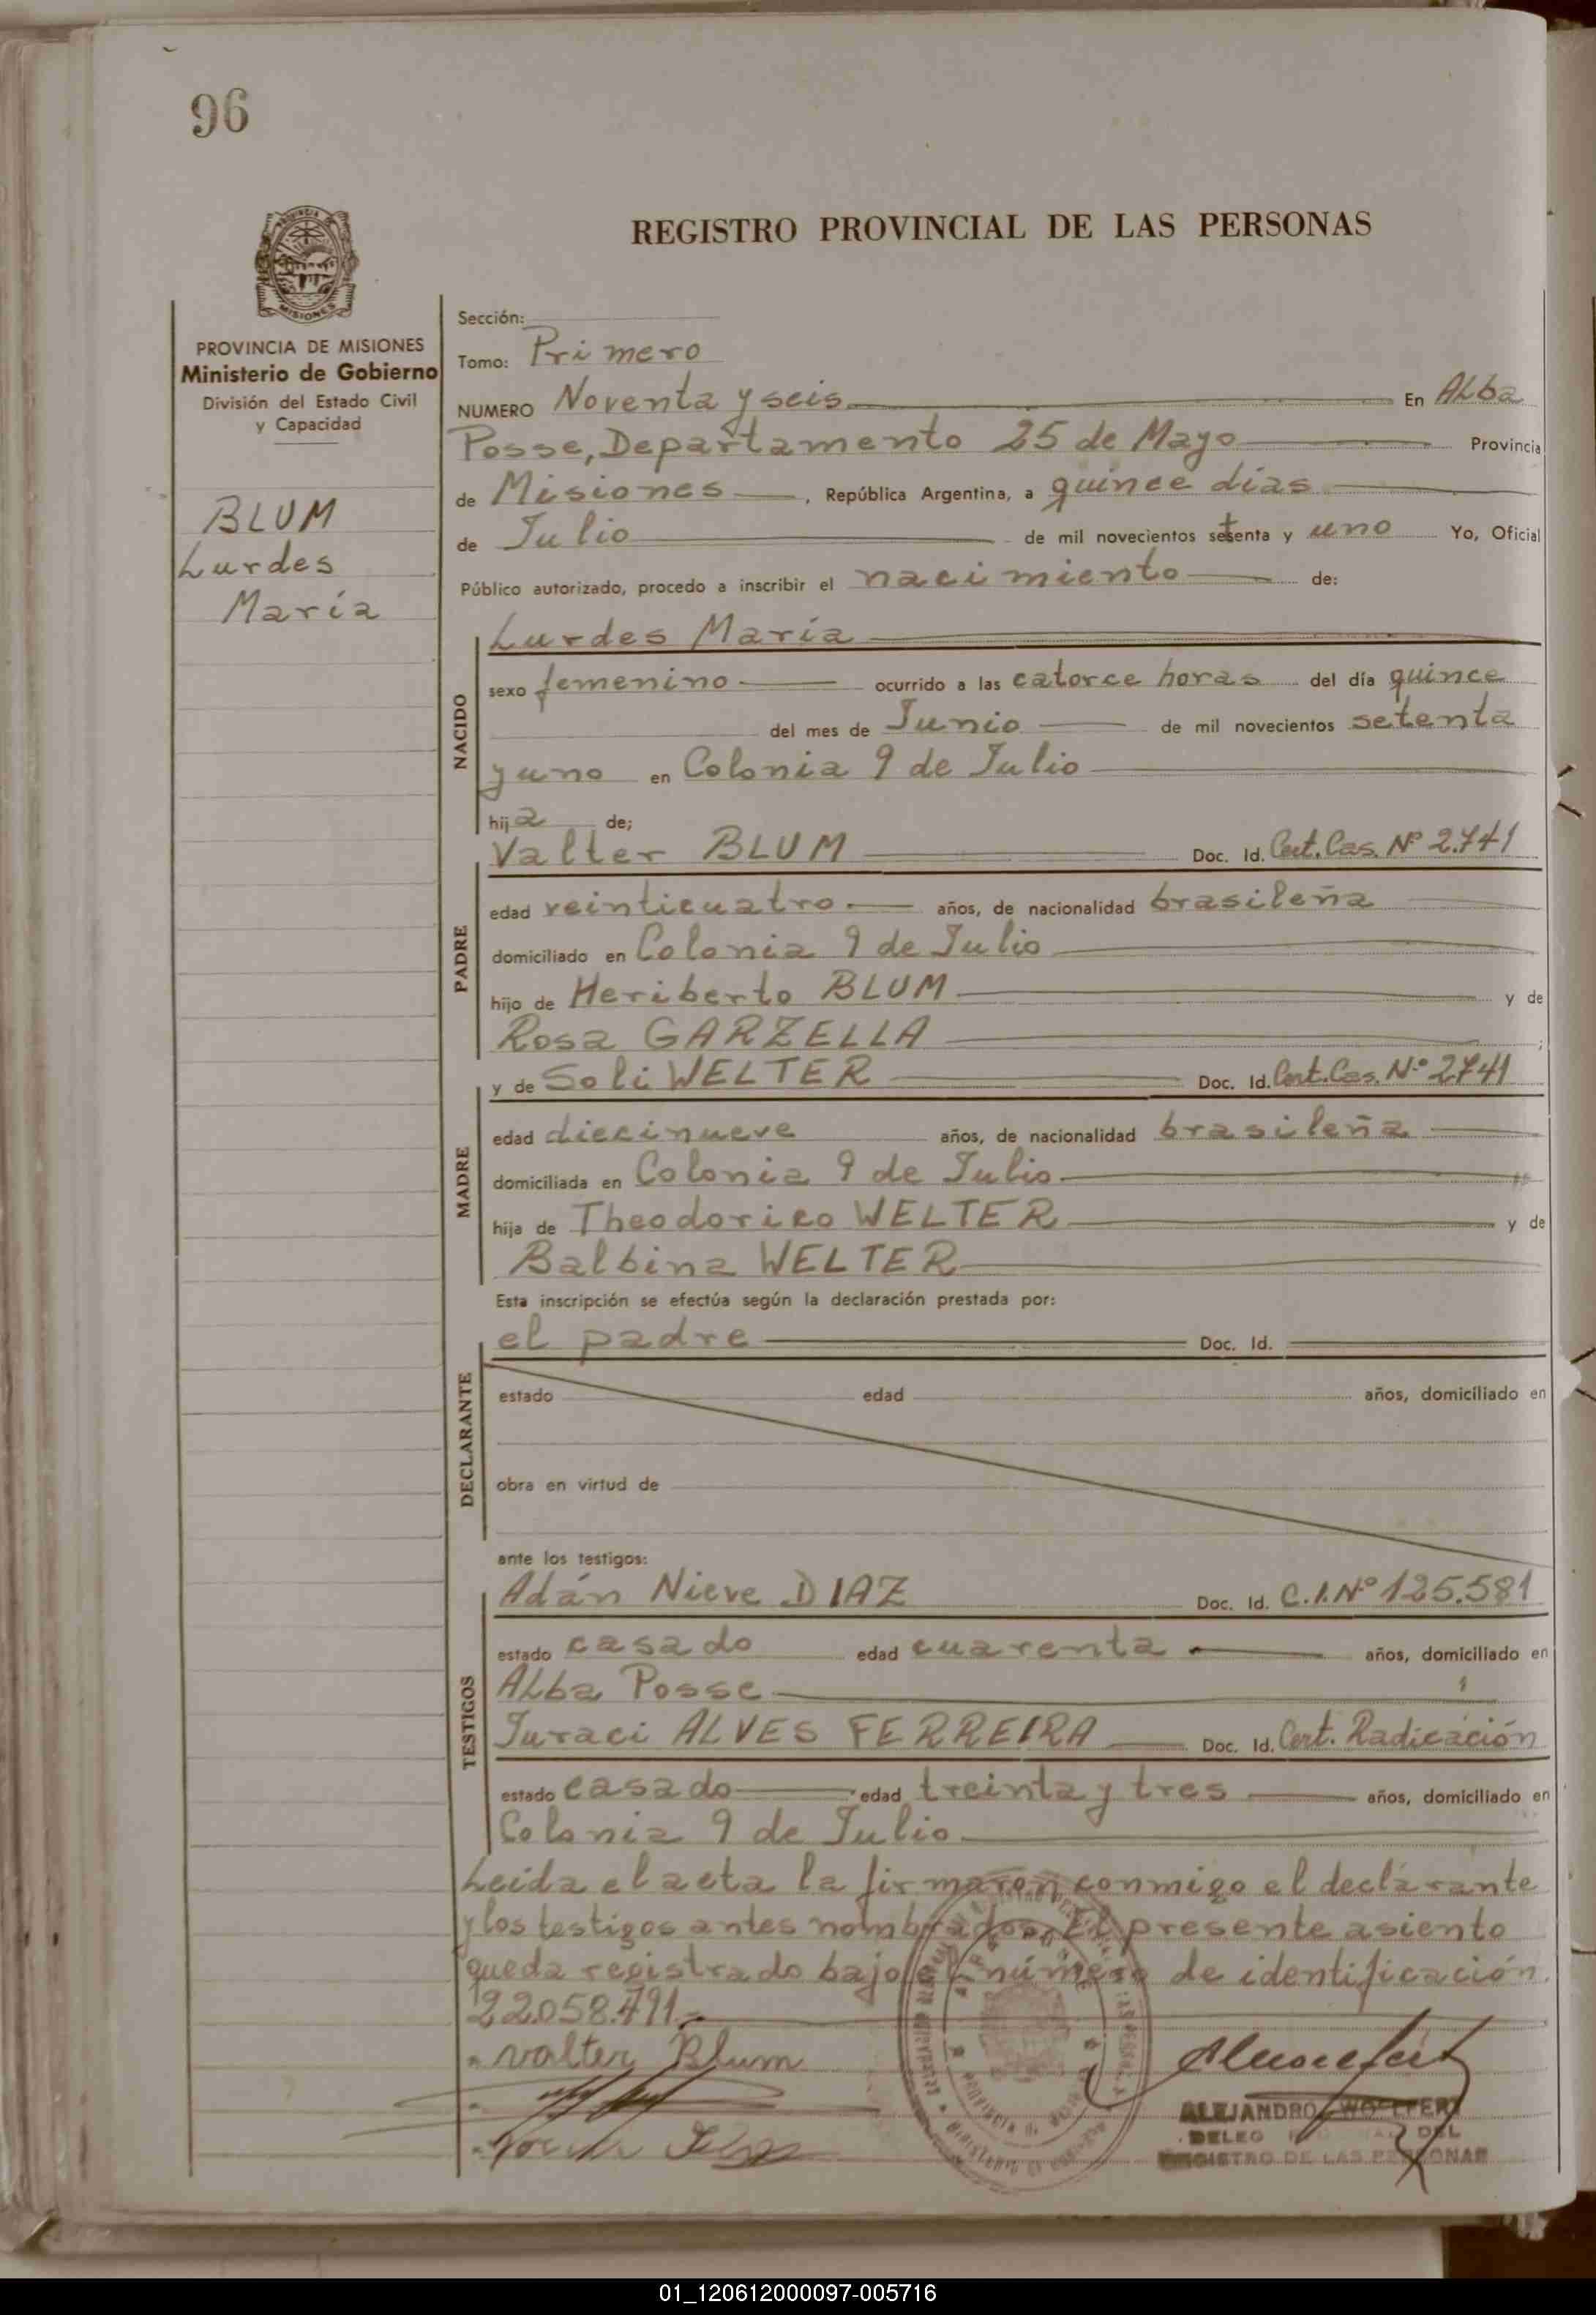 96
REGISTRO PROVINCIAL DE LAS PERSONAS
MISIONES
PROVINCIA DE MISIONES
Ministerio de Gobierno
División del Estado Civil
y Capacidad
BLUM
Lurdes
María
Sección:
Tomo: Primero
NUMERO Noventa y seis En Alba
Posse, Departamento 25 de Mayo Provincia
de Misiones, República Argentina, a quince días
de Julio de mil novecientos setenta y uno Yo, Oficial
Público autorizado, procedo a inscribir el nacimiento de:
NACIDO
Lurdes María
sexo femenino ocurrido a las catorce horas del día quince
del mes de Junio de mil novecientos setenta
y uno en Colonia 9 de Julio
hija de;
PADRE
Valter BLUM Doc. Id. Cert. Cas. Nº 2.741
edad veinticuatro años, de nacionalidad brasileña
domiciliado en Colonia 9 de Julio
hijo de Heriberto BLUM y de
Rosa GARZELLA ;
MADRE
y de Soli WELTER Doc. Id. Cert. Cas. Nº 2741
edad diecinueve años, de nacionalidad brasileña
domiciliada en Colonia 9 de Julio
hija de Theodorico WELTER y de
Balbina WELTER
Esta inscripción se efectúa según la declaración prestada por:
DECLARANTE
el padre Doc. Id.
estado edad años, domiciliado en
obra en virtud de
ante los testigos:
TESTIGOS
Adán Nieve DIAZ Doc. Id. C.I. Nº 125.581
estado casado edad cuarenta años, domiciliado en
Alba Posse
Juraci ALVES FERREIRA Doc. Id. Cert. Radicación
estado casado edad treinta y tres años, domiciliado en
Colonia 9 de Julio
Leida el acta la firmaron conmigo el declarante
y los testigos antes nombrados. El presente asiento
queda registrado bajo el número de identificación
22.058.791.-
Valter Blum
ALEJANDRO WOLFFERT
DEL
REGISTRO DE LAS PERSONAS
01_120612000097-005716